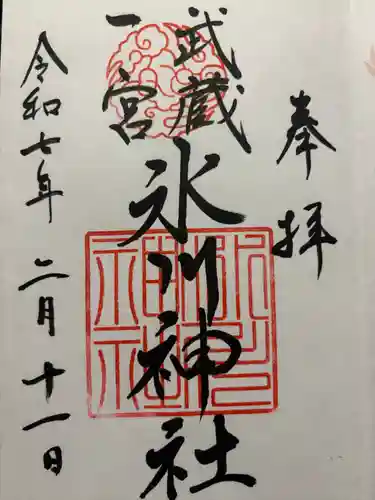 奉拝
武蔵
一宮
氷川神社
令和七年二月十一日